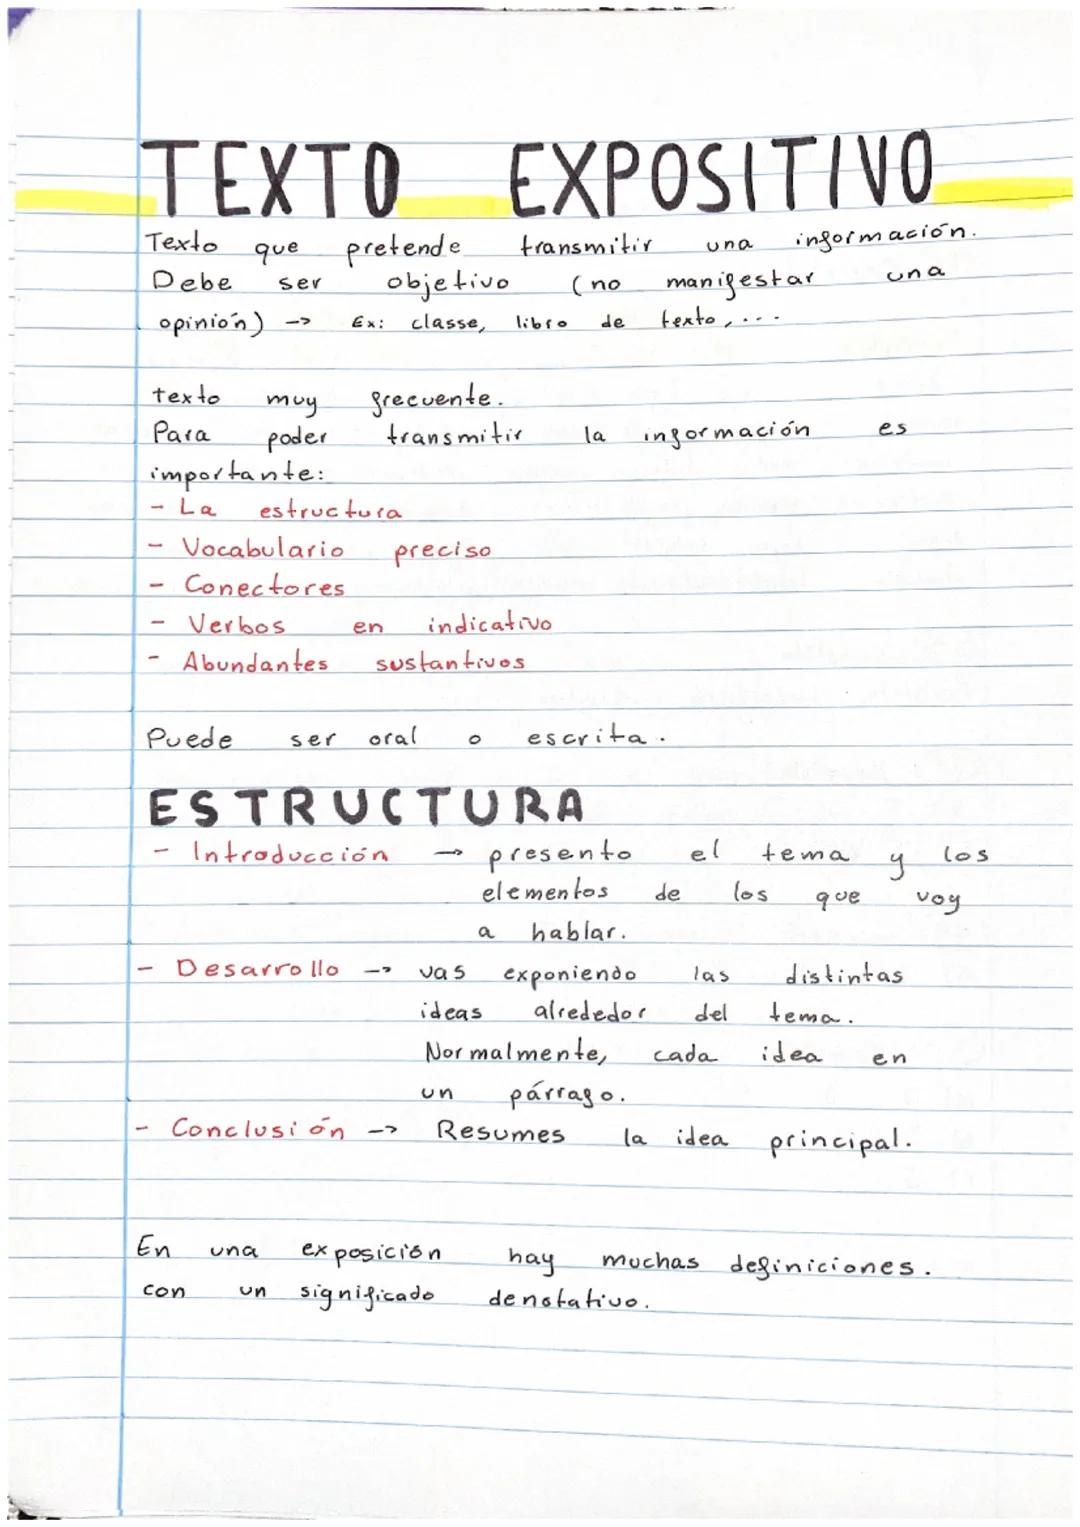 TEXTO EXPOSITIVO
Texto que pretende transmitir una información.
Debe ser objetivo (no manifestar una
opinión) -> Ex: classe, libro de texto,...
texto muy frecuente.
Para poder transmitir la información es
importante:
- La estructura
- Vocabulario preciso
- Conectores
- Verbos en indicativo
- Abundantes sustantivos
Puede ser oral o escrita.
ESTRUCTURA
- Introducción → presento el tema y los
elementos de los que voy
a hablar.
- Desarrollo -> vas exponiendo las distintas
ideas alrededor del tema.
Normalmente, cada idea en
un párrafo.
- Conclusión -> Resumes la idea principal.
En una exposición hay muchas definiciones.
con un significado denotativo.